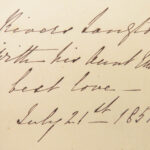 Rivers Langt
with his aunt
best love —
July 21st 185